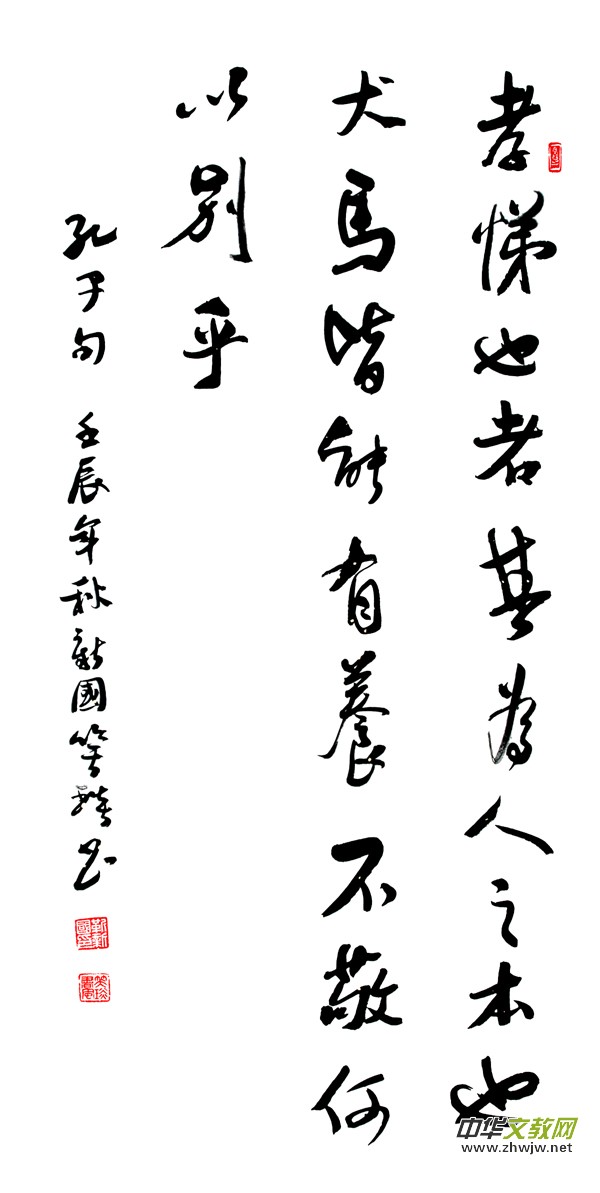 孝悌也者其為人之本也
犬馬皆能有養不敬何
以別乎
孔子句 壬辰年秋新國笑
中华文教网
www.zhwjw.net